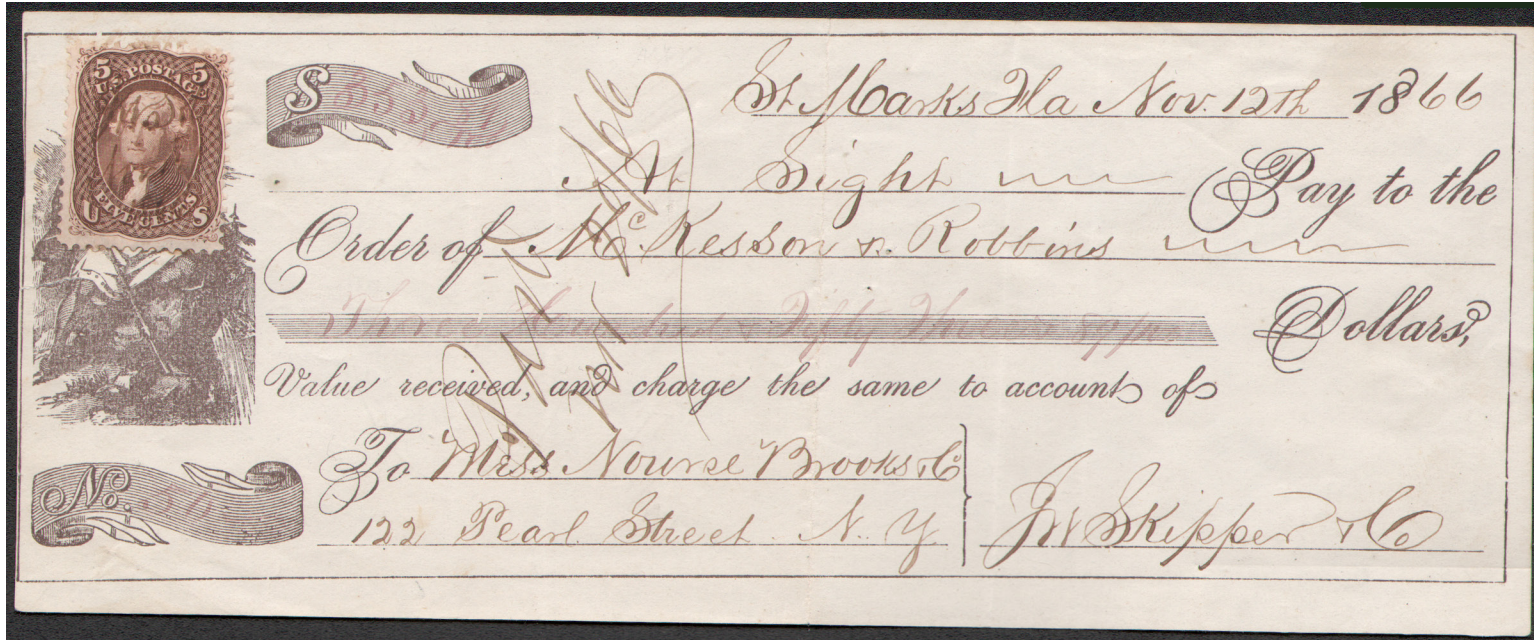 5 5
U.S. POSTAGE
U FIVE CENTS S
$ 353.
St Marks Fla Nov. 12th 1866
At Sight Pay to the
Order of McKesson & Robbins
Three Hundred & Fifty Three 89/100 Dollars,
Value received, and charge the same to account of
To Mess Nourse Brooks & Co
122 Pearl Street N. Y.
JW Skipper & Co
No.